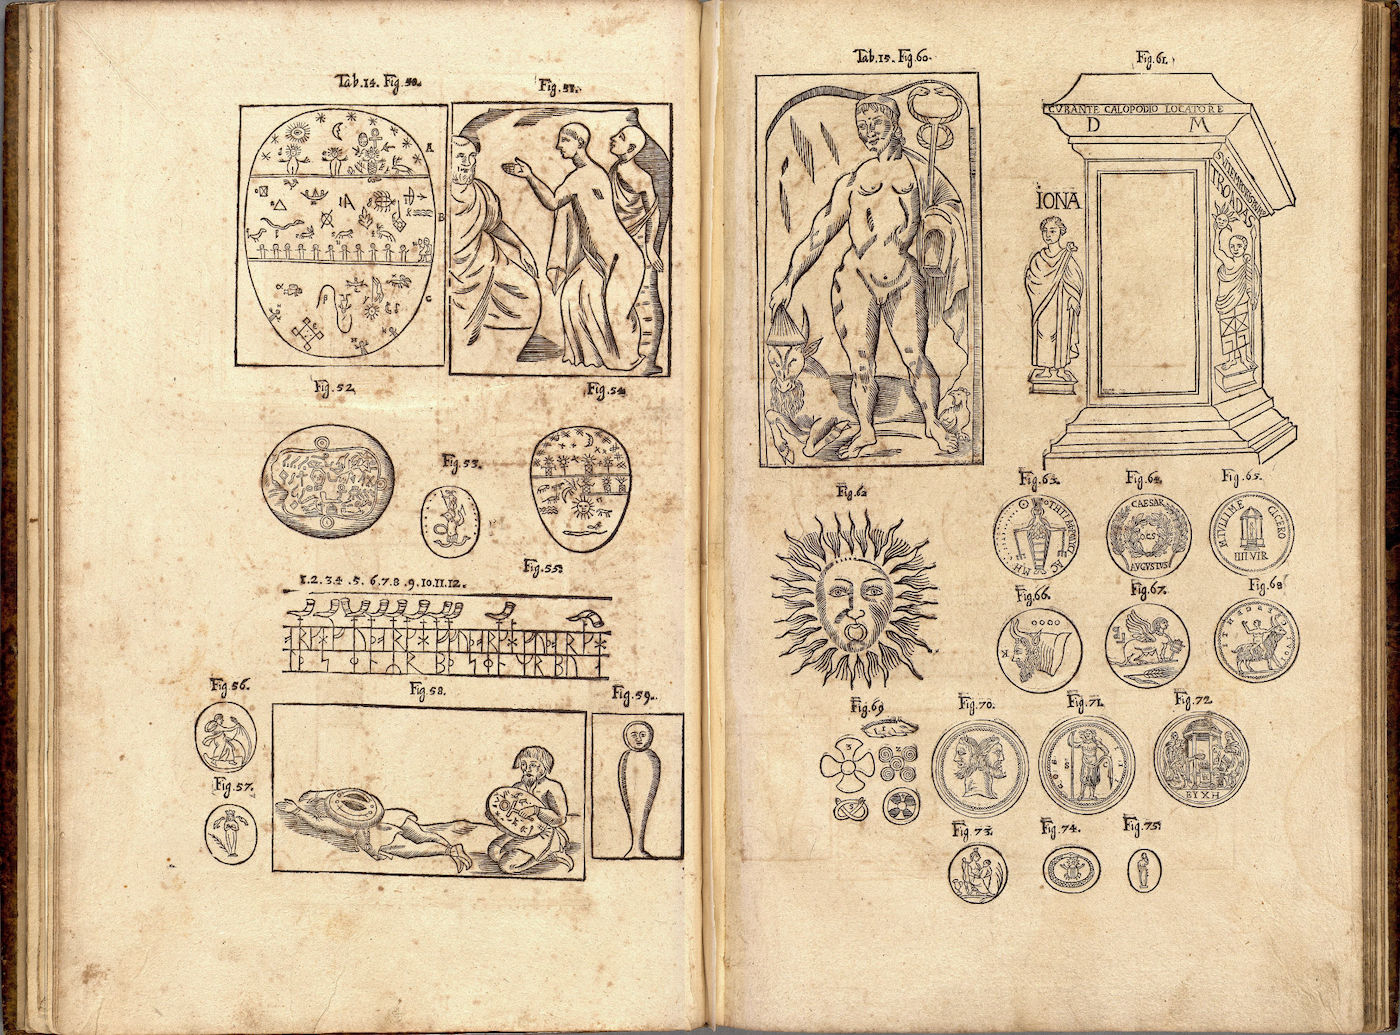 Tab.14. Fig.50.
Fig.51.
A
B
C
Fig.52
Fig.53.
Fig.54
Fig.55.
1.2.3.4.5.6.7.8.9.10.11.12.
Fig.56.
Fig.57.
Fig.58.
Fig.59.
Tab.15. Fig.60.
Fig.61.
CVRANTE CALOPODIO LOCATORE
D M
IONA
Fig.62
Fig.63.
Fig.64.
CAESAR
AVGVSTVS
Fig.65.
CICERO
IIII VIR
Fig.66.
K
Fig.67.
Fig.68
Fig.69
3
3
3
Fig.70.
Fig.71.
Fig.72.
Fig.73.
Fig.74.
Fig.75.